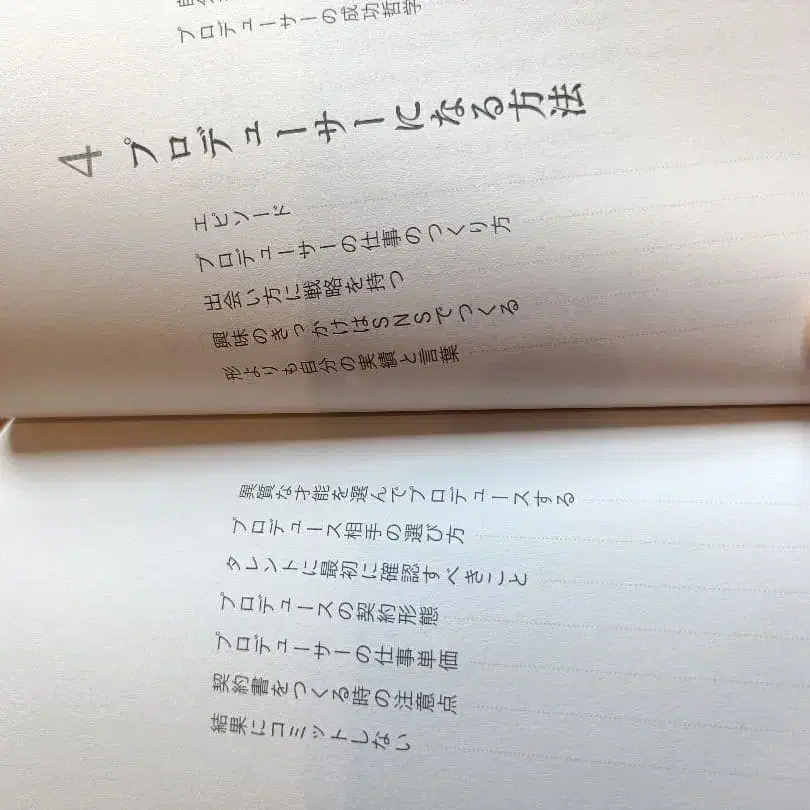 プロデューサーの成功哲学
4 プロデューサーになる方法
エピソード
プロデューサーの仕事のつくり方
出会い方に戦略を持つ
興味のきっかけはSNSでつくる
形よりも自分の実績と言葉
異質な才能を選んでプロデュースする
プロデュース相手の選び方
タレントに最初に確認すべきこと
プロデュースの契約形態
プロデューサーの仕事単価
契約書をつくる時の注意点
結果にコミットしない